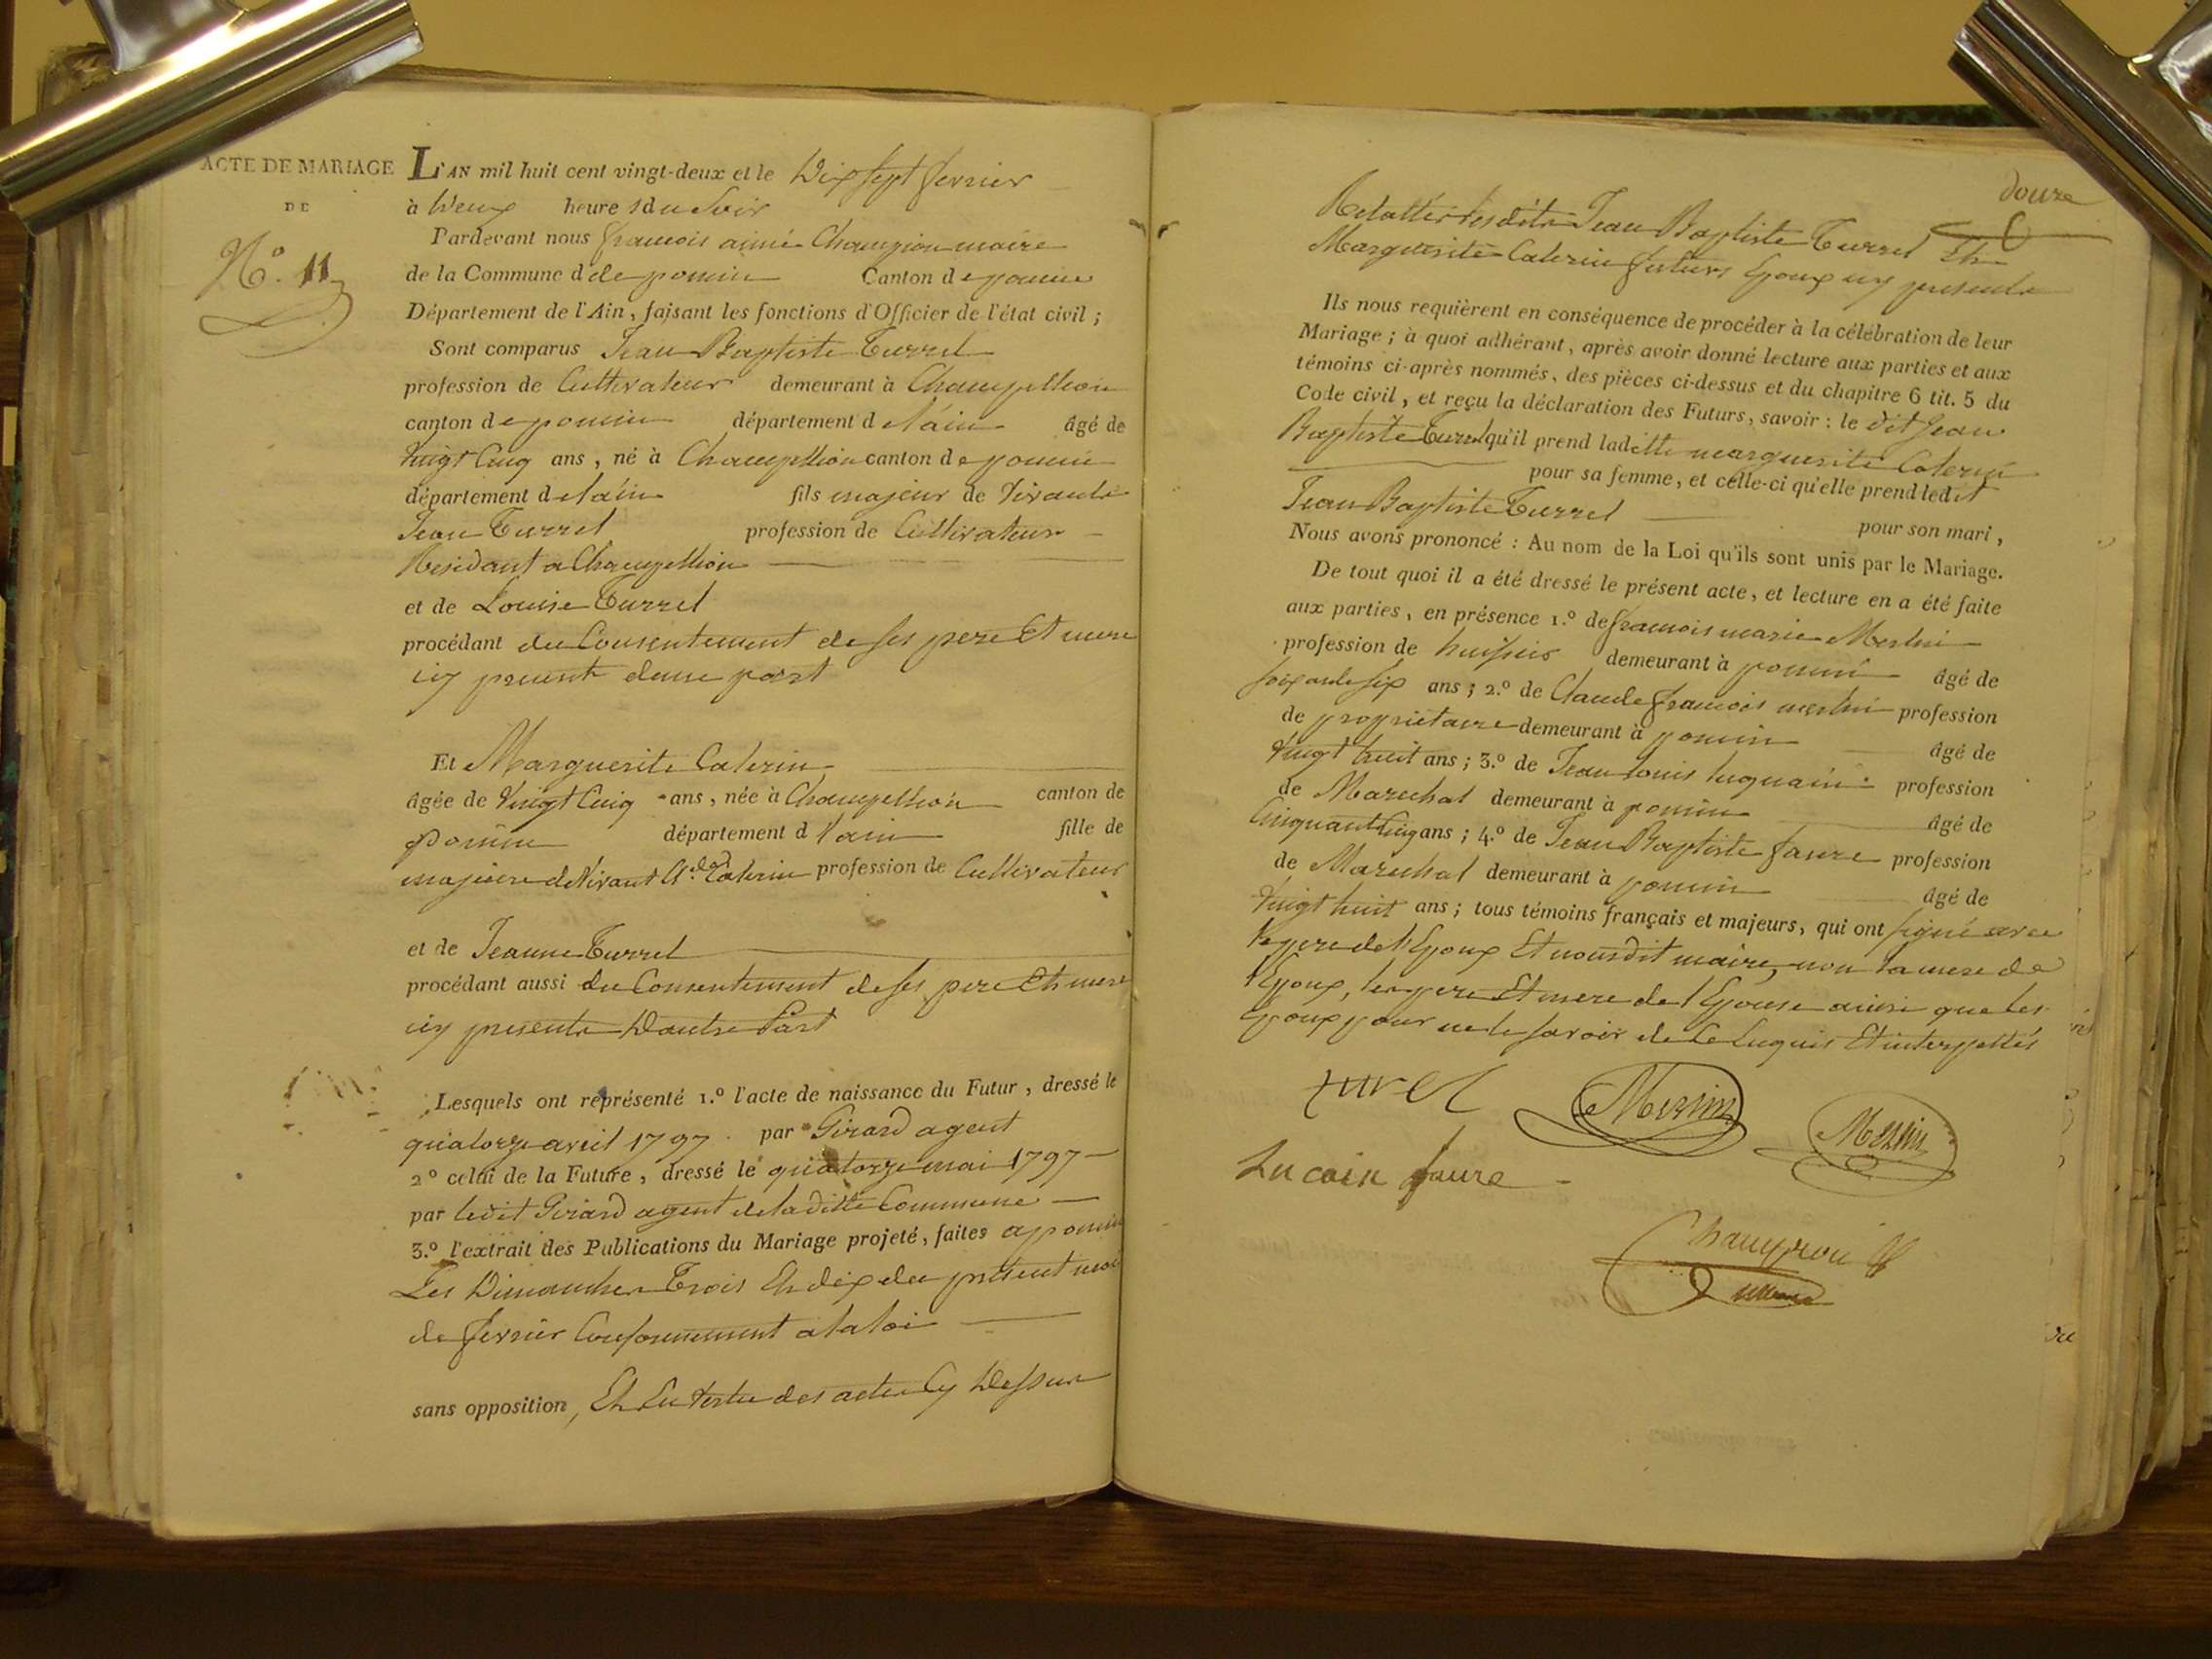 ACTE DE MARIAGE
DE
N.º 11
L'AN mil huit cent vingt-deux et le Dix sept fevrier
à Deux heures du Soir
Pardevant nous francois aimé Champion maire
de la Commune d de poncin Canton de poncin
Département de l'Ain, faisant les fonctions d'Officier de l'état civil ;
Sont comparus Jean Baptiste Turrel
profession de Cultivateur demeurant à Champeillon
canton de poncin département de l'ain âgé de
vingt Cinq ans, né à Champeillon canton de poncin
département de l'ain fils majeur de vivants
Jean Turrel profession de Cultivateur
Residant a Champeillon
et de Louise Turrel
procédant du Consentement de ses pere Et mere
icy present dune part
Et Marguerite Caterin
âgée de Vingt Cinq ans, née à Champeillon canton de
poncin département d l'ain fille de
majeure de vivant Caterin profession de Cultivateur
et de Jeanne Turrel
procédant aussi du Consentement de ses pere Et mere
icy presents Dautre Part
Lesquels ont représenté 1.º l'acte de naissance du Futur, dressé le
quatorze avril 1797. par Girard agent
2º celui de la Future, dressé le quatorze mai 1797
par ledit Girard agent de laditte Commune
3.º l'extrait des Publications du Mariage projeté, faites a poncin
Les Dimanches Trois Et dix du present mois
de fevrier Conformement a la loi
sans opposition, Et En vertu des actes Cy Dessus
douze
Relattés lesdits Jean Baptiste Turrel Et
Marguerite Caterin futurs Epoux icy presents
Ils nous requièrent en conséquence de procéder à la célébration de leur
Mariage ; à quoi adhérant, après avoir donné lecture aux parties et aux
témoins ci-après nommés, des pièces ci-dessus et du chapitre 6 tit. 5 du
Code civil, et reçu la déclaration des Futurs, savoir : le dit Jean
Baptiste Turrel qu'il prend laditte marguerite Caterin
pour sa femme, et celle-ci qu'elle prend ledit
Jean Baptiste Turrel pour son mari,
Nous avons prononcé : Au nom de la Loi qu'ils sont unis par le Mariage.
De tout quoi il a été dressé le présent acte, et lecture en a été faite
aux parties, en présence 1.º de francois marie Merlin
profession de huissier demeurant à poncin âgé de
soixante six ans ; 2.º de Claude francois merlin profession
de proprietaire demeurant à poncin âgé de
vingt huit ans ; 3.º de Jean Louis profession
de Marechal demeurant à poncin âgé de
Cinquant Cinq ans ; 4.º de Jean Baptiste faure profession
de Marechal demeurant à poncin âgé de
vingt huit ans ; tous témoins français et majeurs, qui ont signé avec
le pere de l'Epoux Et nousdit maire, non la mere de
l'Epoux, les pere Et mere de l'Epouse ainsi que les
Epoux pour ne le savoir de Ce Enquis Et interpellés
turel Merlin Merlin
Lucain faure
Champion
maire